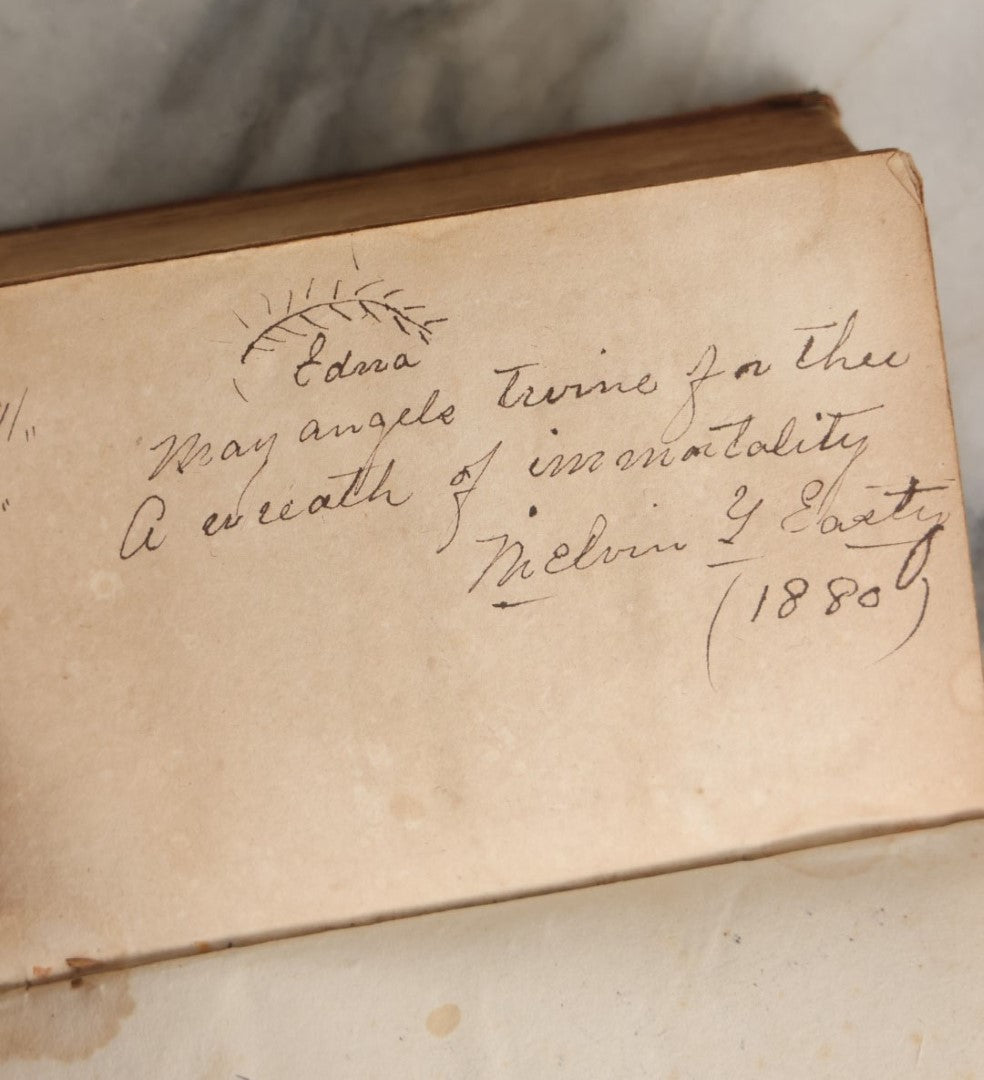 Edna
May angels twine for thee
A wreath of immortality
Melvin Y Easty
(1880)